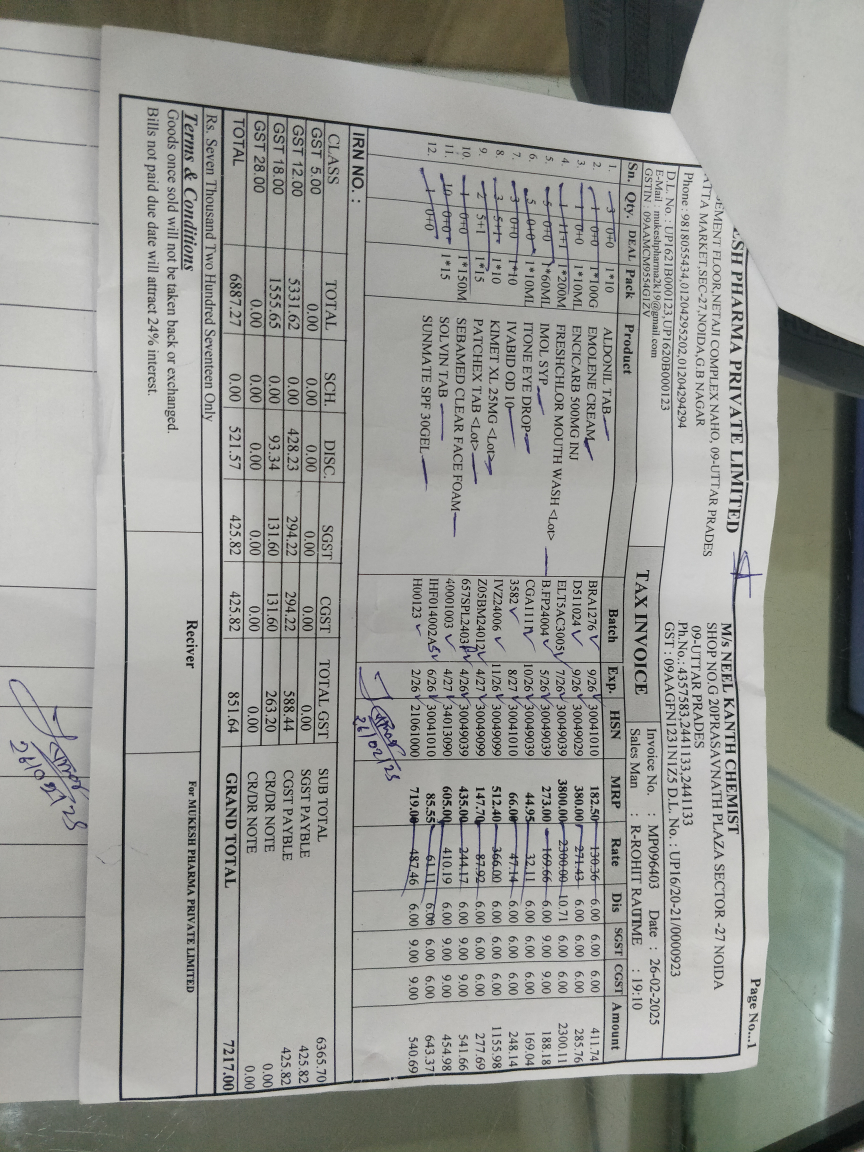 ESH PHARMA PRIVATE LIMITED
EMENT FLOOR,NETAJI COMPLEX NAHO, 09-UTTAR PRADES
ATTA MARKET,SEC-27,NOIDA,G.B NAGAR
Phone : 9818055434,01204295202,01204294294
D.L. No. : UP1621B000123,UP1620B000123
E-Mail : mukeshpharma2k19@gmail.com
GSTIN : 09AAMCM9554G1ZV
Page No...1
M/s NEEL KANTH CHEMIST
SHOP NO.G 20PRASAVNATH PLAZA SECTOR -27 NOIDA
09-UTTAR PRADES
Ph.No.: 4357583,2441133,2441133
GST : 09AAGFN1231N1Z5 D.L. No. : UP16/20-21/0000923
TAX INVOICE
Invoice No. : MP096403 Date : 26-02-2025
Sales Man : R-ROHIT RAUTIME : 19:10
Sn. Qty. DEAL Pack Product Batch Exp. HSN MRP Rate Dis SGST CGST Amount
1. 3 0+0 1*10 ALDONIL TAB BRA1276 9/26 30041010 182.50 130.36 6.00 6.00 6.00 411.74
2. 1 0+0 1*100G EMOLENE CREAM D511024 9/26 30049029 380.00 271.43 6.00 6.00 6.00 285.76
3. 1 0+0 1*10ML ENCICARB 500MG INJ ELT5AC3005 7/26 30049039 3800.00 2300.00 10.71 6.00 6.00 2300.11
4. 1 11+1 1*200M FRESHCHLOR MOUTH WASH <Lot> B.FP24004 5/26 30049039 273.00 169.66 6.00 9.00 9.00 188.18
5. 5 0+0 1*60ML IMOL SYP CGA1111 10/26 30049039 44.95 32.11 6.00 6.00 6.00 169.04
6. 5 0+0 1*10ML ITONE EYE DROP 3582 8/27 30041010 66.00 47.14 6.00 6.00 6.00 248.14
7. 3 0+0 1*10 IVABID OD 10 IVZ24006 11/26 30049099 512.40 366.00 6.00 6.00 6.00 1155.98
8. 3 5+1 1*10 KIMET XL 25MG <Lot> Z05BM24012 4/27 30049099 147.70 87.92 6.00 6.00 6.00 277.69
9. 2 5+1 1*15 PATCHEX TAB <Lot> 657SPL2403 4/26 30049039 435.00 244.17 6.00 9.00 9.00 541.66
10. 1 0+0 1*150M SEBAMED CLEAR FACE FOAM 40001003 4/27 34013090 605.00 410.19 6.00 9.00 9.00 454.98
11. 10 0+0 1*15 SOLVIN TAB IHF014002AS 6/26 30041010 85.55 61.11 6.00 6.00 6.00 643.37
12. 1 0+0 SUNMATE SPF 30GEL H00123 2/26 21061000 719.00 487.46 6.00 9.00 9.00 540.69
26/02/25
IRN NO. :
CLASS TOTAL SCH. DISC. SGST CGST TOTAL GST
GST 5.00 0.00 0.00 0.00 0.00 0.00 0.00
GST 12.00 5331.62 0.00 428.23 294.22 294.22 588.44
GST 18.00 1555.65 0.00 93.34 131.60 131.60 263.20
GST 28.00 0.00 0.00 0.00 0.00 0.00 0.00
TOTAL 6887.27 0.00 521.57 425.82 425.82 851.64
SUB TOTAL 6365.70
SGST PAYBLE 425.82
CGST PAYBLE 425.82
CR/DR NOTE 0.00
CR/DR NOTE 0.00
GRAND TOTAL 7217.00
Rs. Seven Thousand Two Hundred Seventeen Only
Terms & Conditions
Goods once sold will not be taken back or exchanged.
Bills not paid due date will attract 24% interest.
Reciver
For MUKESH PHARMA PRIVATE LIMITED
26/02/25